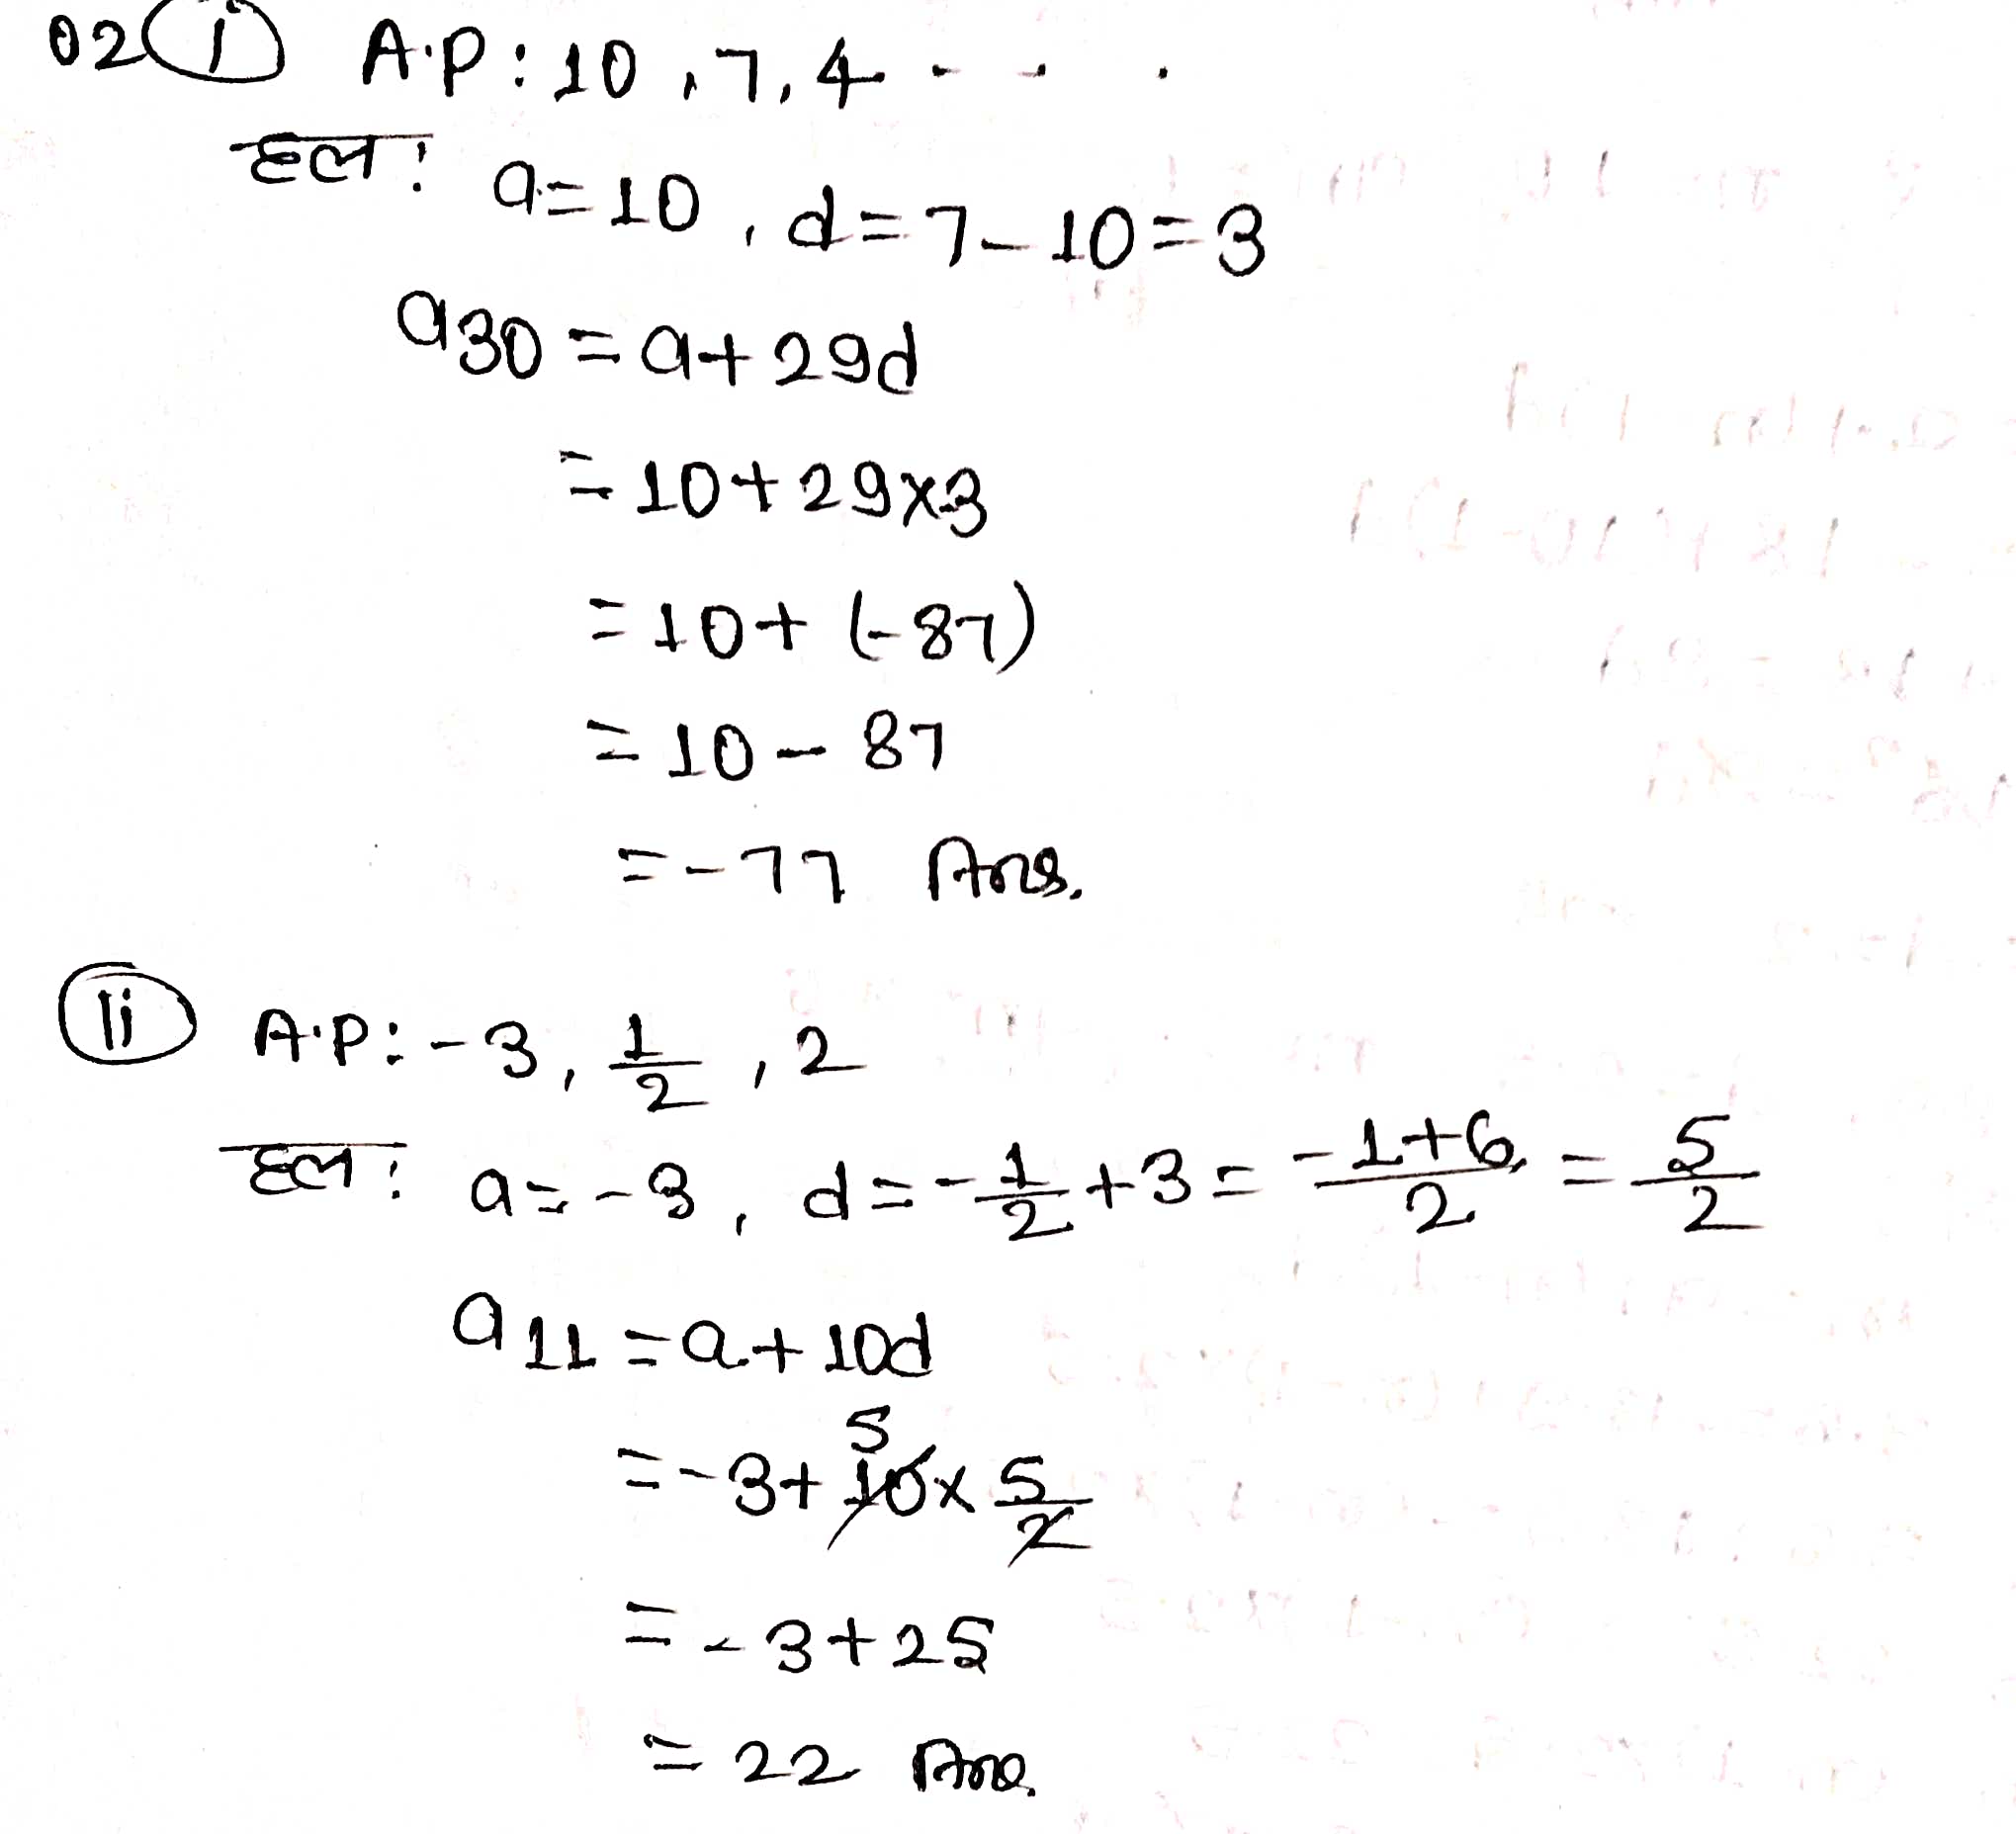 02 (i) A.P : 10, 7, 4 - - .
हल: a=10, d=7-10=3
a30 = a+29d
= 10+29x3
= 10+(-87)
= 10-87
= -77 Ans.
(ii) A.P: -3, 1/2, 2
हल: a=-3, d=-1/2+3 = -1+6/2 = 5/2
a11 = a+10d
5
= -3+10x5/2
= -3+25
= 22 Ans.